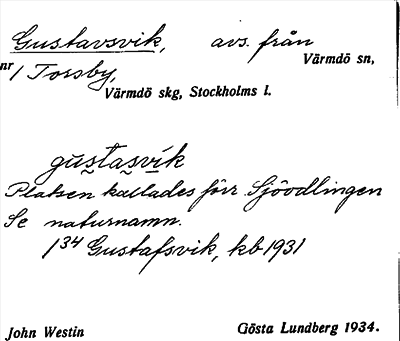 Gustavsvik, avs. från
Värmdö sn,
nr 1 Torsby,
Värmdö skg, Stockholms l.
gustasvik
Platsen kallades förr Sjöodlingen
Se naturnamn.
1/34 Gustafsvik, kb 1931
John Westin Gösta Lundberg 1934.